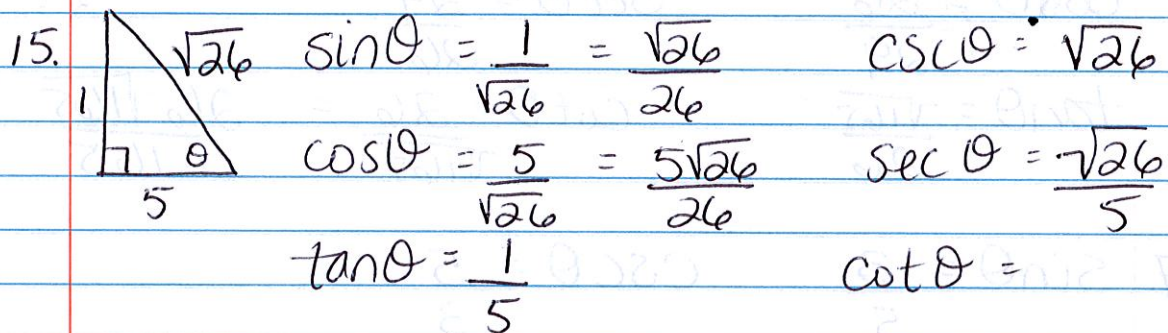 15. √26 sinθ = 1/√26 = √26/26 cscθ = √26
1 θ cosθ = 5/√26 = 5√26/26 sec θ = √26/5
5
tanθ = 1/5 cot θ =